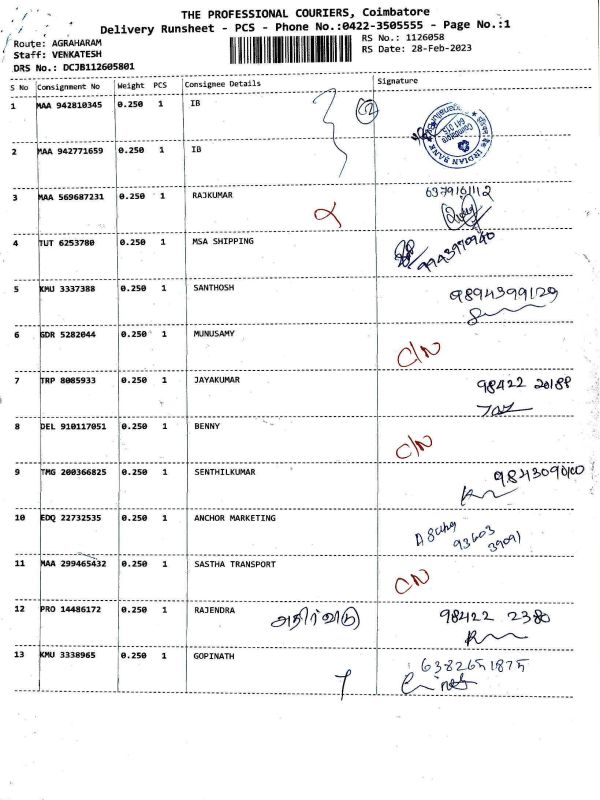 THE PROFESSIONAL COURIERS, Coimbatore
Delivery Runsheet - PCS - Phone No.:0422-3505555 - Page No.:1
Route: AGRAHARAM
RS No.: 1126058
Staff: VENKATESH
RS Date: 28-Feb-2023
DRS No.: DCJB112605801
S No Consignment No Weight PCS Consignee Details Signature
1 MAA 942810345 0.250 1 IB
INDIAN BANK
Coimbatore
641 015
2 MAA 942771659 0.250 1 IB
3 MAA 569687231 0.250 1 RAJKUMAR
4 TUT 6253780 0.250 1 MSA SHIPPING
5 KMU 3337388 0.250 1 SANTHOSH 9894399129
6 GDR 5282044 0.250 1 MUNUSAMY C/N
7 TRP 8085933 0.250 1 JAYAKUMAR 98422 20188
8 DEL 910117051 0.250 1 BENNY C/N
9 TMG 200366825 0.250 1 SENTHILKUMAR
10 EDQ 22732535 0.250 1 ANCHOR MARKETING 93603
39091
11 MAA 299465432 0.250 1 SASTHA TRANSPORT C/N
12 PRO 14486172 0.250 1 RAJENDRA 98422 2380
13 KMU 3338965 0.250 1 GOPINATH 6382651875